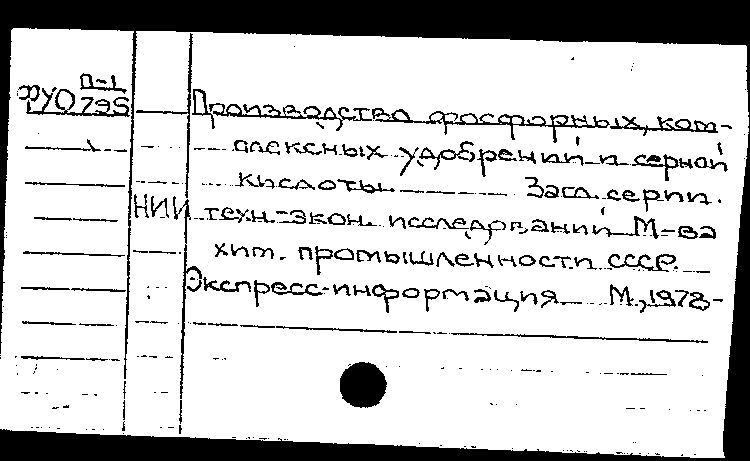 П-1
ФУО 795
Производство фосфорных, ком-
плексных удобрений и серной
кислоты. Загл. серии.
НИИ техн.-экон. исследований М-ва
хим. промышленности СССР.
Экспресс-информация. М., 1978-